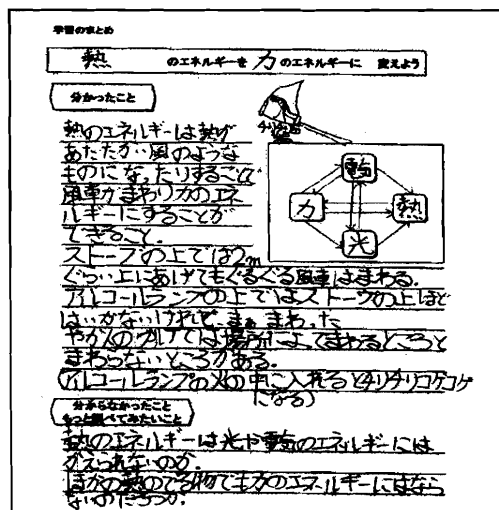 学習のまとめ
熱 のエネルギーを 力 のエネルギーに 変えよう
分かったこと
熱のエネルギーは熱が
あたたかい風のような
ものになったりすることで
風車がまわり力のエネ
ルギーにすることが
できること。
電
力
熱
光
ストーブの上では2m
ぐらい上にあげてもぐるぐる風車はまわる。
アルコールランプの上ではストーブの上ほど
はいかないけれど、まぁまわった
やかんの では場所によってまわるところと
まわらないところがある。
(アルコールランプの火の中に入れるとチリチリコゲコゲ
になる)
分からなかったこと
もっと調べてみたいこと
熱のエネルギーは光や電気のエネルギーには
かえられないのか。
ほかの熱のでる物でも力のエネルギーにはなら
ないのだろうか。